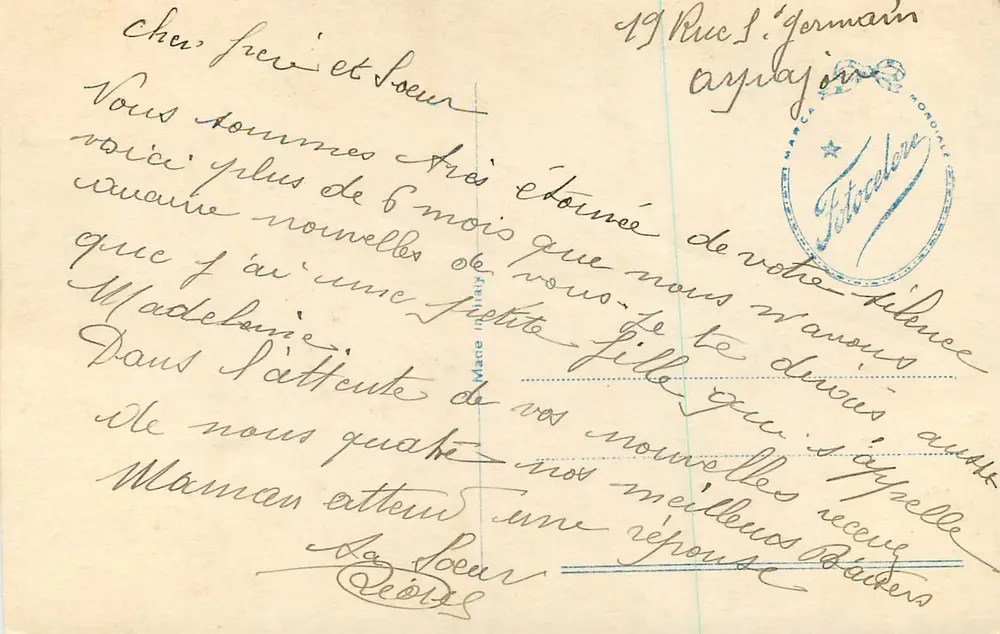 19 Rue St Germain
arpajon
cher frere et Soeur
Vous sommes très étonnée de votre silence
voici plus de 6 mois que nous n'avons
aucune nouvelles de vous. Je te dirais aussi
que j'ai une petite fille qui s'appelle
Madeleine.
Dans l'attente de vos nouvelles recevez
de nous quatre nos meilleurs Baisers
Maman attend une réponse
ta Soeur
MARCA MONDIALE
Fotocelere
Made in Italy